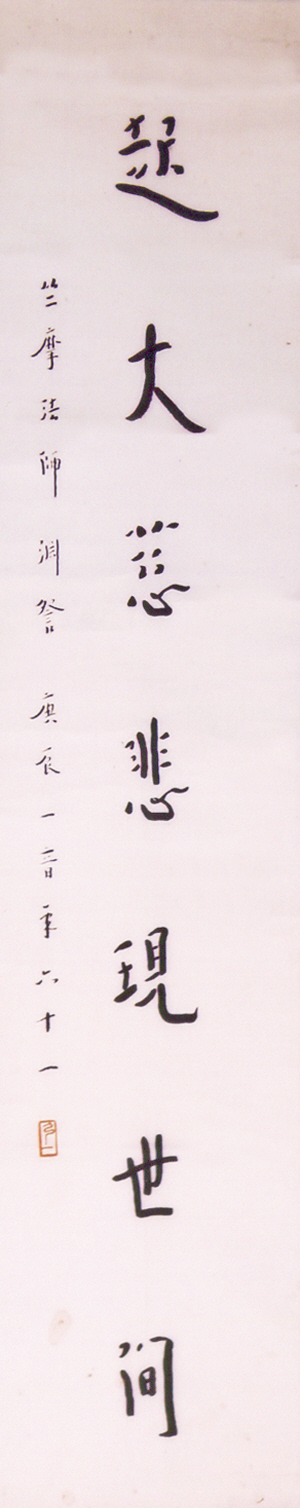 起大慈悲現世間
竺摩法師淵詧 庚辰一音年六十一